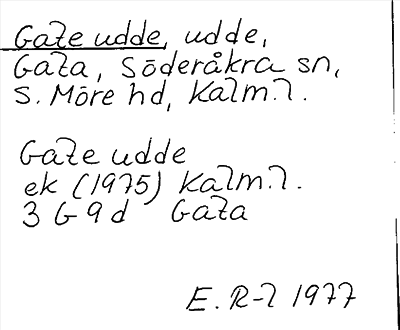 Gate udde, udde,
Gata, Söderåkra sn,
S. Möre hd, Kalm.l.
Gate udde
ek (1975) Kalm.l.
3 G 9 d Gata
E. R-l 1977